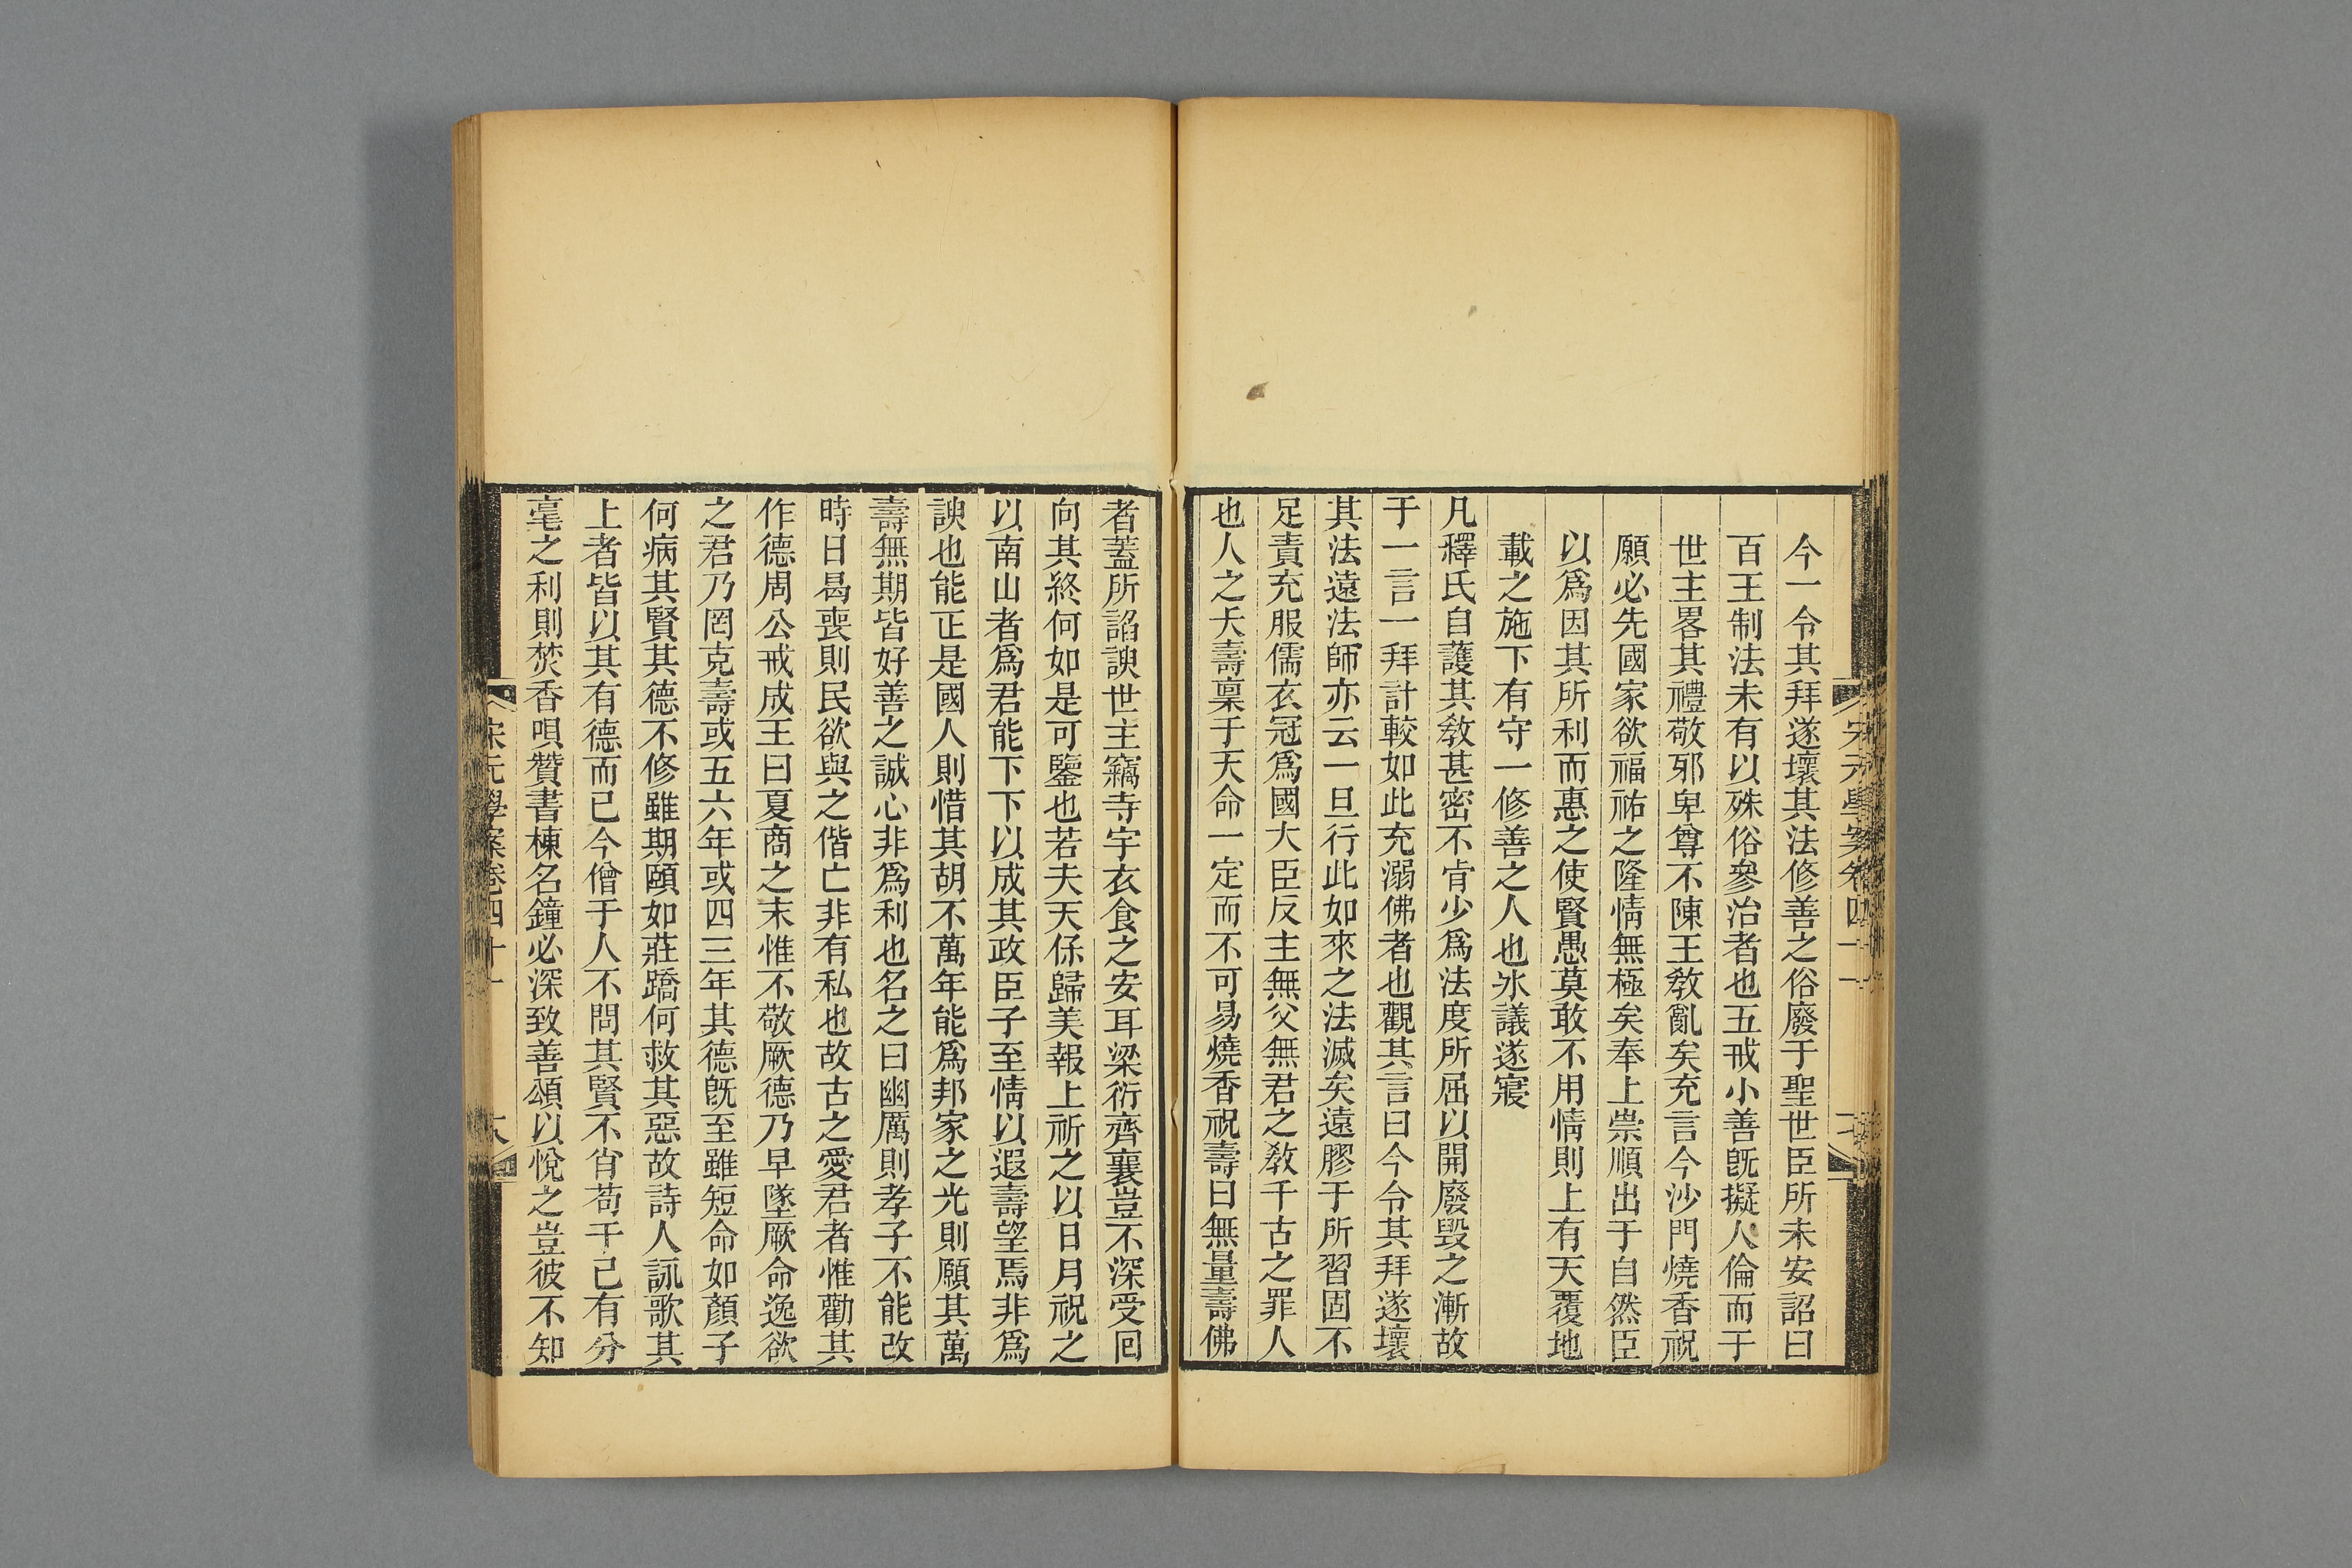 今一令其拜遂壞其法修善之俗廢于聖世臣所未安詔曰
百王制法未有以殊俗參治者也五戒小善旣擬人倫而于
世主畧其禮敬邪卑尊不陳王敎亂矣充言今沙門燒香祝
願必先國家欲福祐之隆情無極矣奉上崇順出于自然臣
以爲因其所利而惠之使賢愚莫敢不用情則上有天覆地
載之施下有守一修善之人也氷議遂寢
凡釋氏自護其敎甚密不肯少爲法度所屈以開廢毀之漸故
于一言一拜計較如此充溺佛者也觀其言曰今令其拜遂壞
其法遠法師亦云一旦行此如來之法滅矣遠膠于所習固不
足責充服儒衣冠爲國大臣反主無父無君之敎千古之罪人
也人之夭壽稟于天命一定而不可易燒香祝壽曰無量壽佛
者蓋所諂諛世主竊寺宇衣食之安耳梁衍齊襄豈不深受回
向其終何如是可鑒也若夫天保歸美報上祈之以日月祝之
以南山者爲君能下下以成其政臣子至情以遐壽望焉非爲
諛也能正是國人則惜其胡不萬年能爲邦家之光則願其萬
壽無期皆好善之誠心非爲利也名之曰幽厲則孝子不能改
時日曷喪則民欲與之偕亡非有私也故古之愛君者惟勸其
作德周公戒成王曰夏商之末惟不敬厥德乃早墜厥命逸欲
之君乃罔克壽或五六年或四三年其德旣至雖短命如顏子
何病其賢其德不修雖期頤如莊蹻何救其惡故詩人詠歌其
上者皆以其有德而已今僧于人不問其賢不肖苟干己有分
毫之利則焚香唄贊書棟名鐘必深致善頌以悅之豈彼不知
宋元學案卷四十一